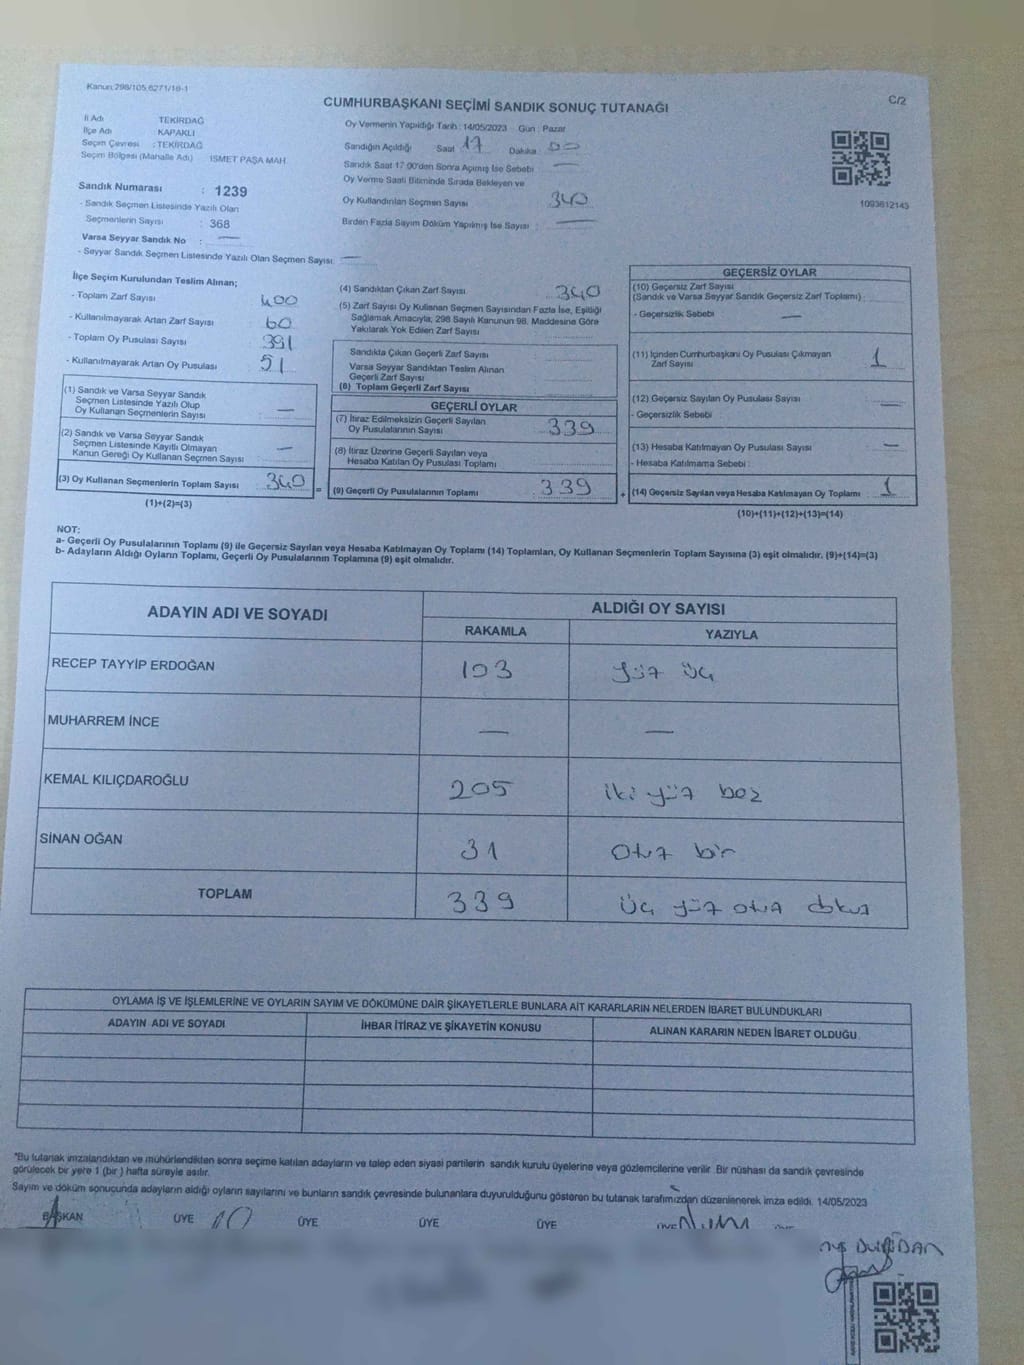 Kanun:298/105,6271/16-1
C/2
CUMHURBAŞKANI SEÇİMİ SANDIK SONUÇ TUTANAĞI
İl Adı TEKİRDAĞ
İlçe Adı KAPAKLI
Seçim Çevresi : TEKİRDAĞ
Seçim Bölgesi (Mahalle Adı) İSMET PAŞA MAH.
Sandık Numarası : 1239
- Sandık Seçmen Listesinde Yazılı Olan
Seçmenlerin Sayısı : 368
Varsa Seyyar Sandık No : —
- Seyyar Sandık Seçmen Listesinde Yazılı Olan Seçmen Sayısı: —
Oy Vermenin Yapıldığı Tarih : 14/05/2023 Gün : Pazar
Sandığın Açıldığı Saat 17 Dakika : 00
Sandık Saat 17:00'den Sonra Açılmış İse Sebebi —
Oy Verme Saati Bitiminde Sırada Bekleyen ve
Oy Kullandırılan Seçmen Sayısı 340
Birden Fazla Sayım Döküm Yapılmış İse Sayısı : —
1093612143
İlçe Seçim Kurulundan Teslim Alınan;
- Toplam Zarf Sayısı 400
- Kullanılmayarak Artan Zarf Sayısı 60
- Toplam Oy Pusulası Sayısı 391
- Kullanılmayarak Artan Oy Pusulası 51
(1) Sandık ve Varsa Seyyar Sandık
Seçmen Listesinde Yazılı Olup
Oy Kullanan Seçmenlerin Sayısı : —
(2) Sandık ve Varsa Seyyar Sandık
Seçmen Listesinde Kayıtlı Olmayan
Kanun Gereği Oy Kullanan Seçmen Sayısı : —
(3) Oy Kullanan Seçmenlerin Toplam Sayısı 340 =
(1)+(2)=(3)
(4) Sandıktan Çıkan Zarf Sayısı 340
(5) Zarf Sayısı Oy Kullanan Seçmen Sayısından Fazla İse, Eşitliği
Sağlamak Amacıyla; 298 Sayılı Kanunun 98. Maddesine Göre
Yakılarak Yok Edilen Zarf Sayısı :
Sandıkta Çıkan Geçerli Zarf Sayısı
Varsa Seyyar Sandıktan Teslim Alınan
Geçerli Zarf Sayısı
(6) Toplam Geçerli Zarf Sayısı
GEÇERLİ OYLAR
(7) İtiraz Edilmeksizin Geçerli Sayılan
Oy Pusulalarının Sayısı : 339
(8) İtiraz Üzerine Geçerli Sayılan veya
Hesaba Katılan Oy Pusulası Toplamı
(9) Geçerli Oy Pusulalarının Toplamı 339 +
GEÇERSİZ OYLAR
(10) Geçersiz Zarf Sayısı
(Sandık ve Varsa Seyyar Sandık Geçersiz Zarf Toplamı) :
- Geçersizlik Sebebi —
(11) İçinden Cumhurbaşkanı Oy Pusulası Çıkmayan
Zarf Sayısı 1
(12) Geçersiz Sayılan Oy Pusulası Sayısı —
- Geçersizlik Sebebi :
(13) Hesaba Katılmayan Oy Pusulası Sayısı —
- Hesaba Katılmama Sebebi :
(14) Geçersiz Sayılan veya Hesaba Katılmayan Oy Toplamı : 1
(10)+(11)+(12)+(13)=(14)
NOT:
a- Geçerli Oy Pusulalarının Toplamı (9) ile Geçersiz Sayılan veya Hesaba Katılmayan Oy Toplamı (14) Toplamları, Oy Kullanan Seçmenlerin Toplam Sayısına (3) eşit olmalıdır. (9)+(14)=(3)
b- Adayların Aldığı Oyların Toplamı, Geçerli Oy Pusulalarının Toplamına (9) eşit olmalıdır.
ADAYIN ADI VE SOYADI ALDIĞI OY SAYISI
RAKAMLA YAZIYLA
RECEP TAYYİP ERDOĞAN 103 yüz üç
MUHARREM İNCE — —
KEMAL KILIÇDAROĞLU 205 iki yüz beş
SİNAN OĞAN 31 otuz bir
TOPLAM 339 üç yüz otuz dokuz
OYLAMA İŞ VE İŞLEMLERİNE VE OYLARIN SAYIM VE DÖKÜMÜNE DAİR ŞİKAYETLERLE BUNLARA AİT KARARLARIN NELERDEN İBARET BULUNDUKLARI
ADAYIN ADI VE SOYADI İHBAR İTİRAZ VE ŞİKAYETİN KONUSU ALINAN KARARIN NEDEN İBARET OLDUĞU
*Bu tutanak imzalandıktan ve mühürlendikten sonra seçime katılan adayların ve talep eden siyasi partilerin sandık kurulu üyelerine veya gözlemcilerine verilir. Bir nüshası da sandık çevresinde
görülecek bir yere 1 (bir ) hafta süreyle asılır.
Sayım ve döküm sonucunda adayların aldığı oyların sayılarını ve bunların sandık çevresinde bulunanlara duyurulduğunu gösteren bu tutanak tarafımızdan düzenlenerek imza edildi. 14/05/2023
BAŞKAN ÜYE ÜYE ÜYE ÜYE